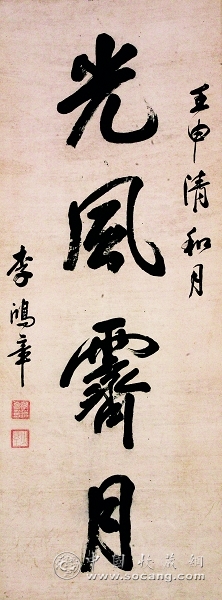 壬申清和月
光風霽月
李鴻章
中国收藏网
www.socang.com